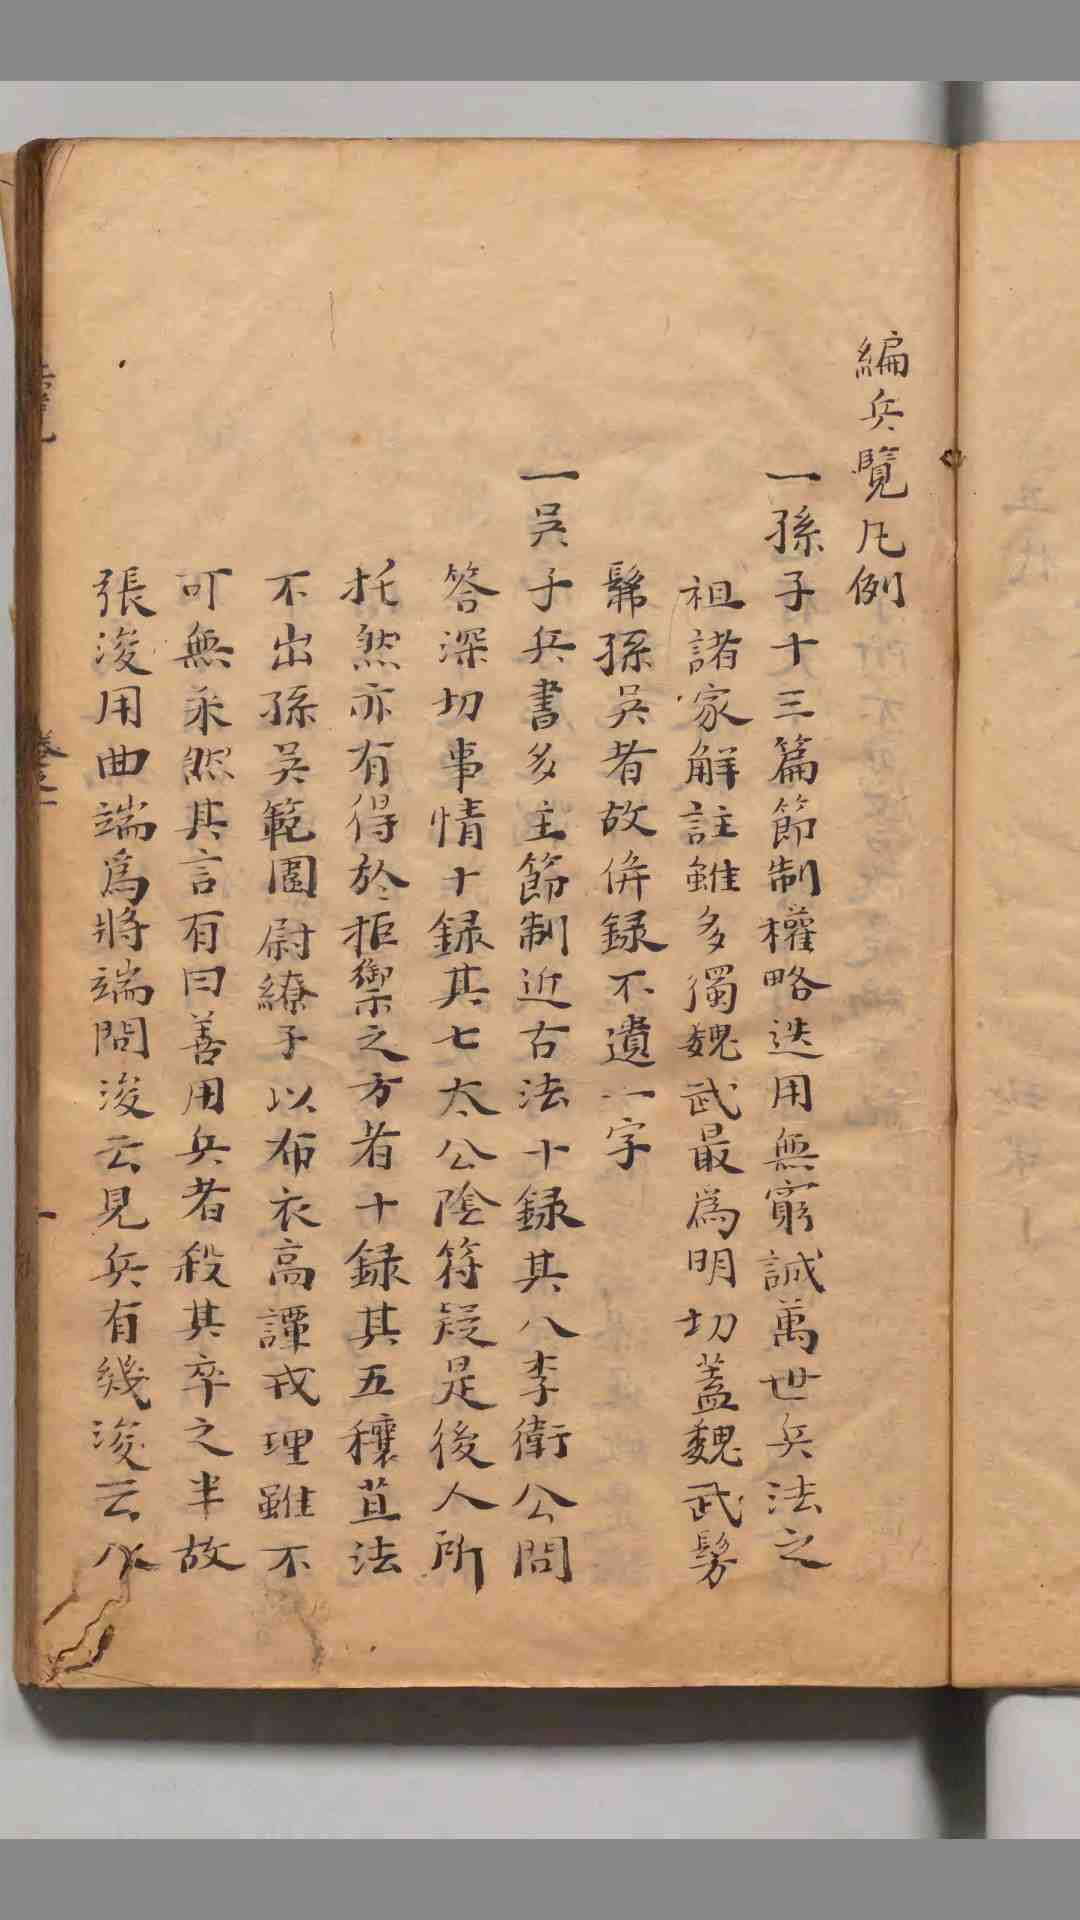 編兵覽凡例
一孫子十三篇節制權略迭用無窮誠萬世兵法之
祖諸家解註雖多獨魏武最爲明切蓋魏武髣
髴孫吳者故倂録不遺一字
一吳子兵書多主節制近古法十録其八李衛公問
答深切事情十録其七太公陰符疑是後人所
托然亦有得於拒禦之方者十録其五穰苴法
不出孫吳範圍尉繚子以布衣高譚戎理雖不
可無采然其言有曰善用兵者殺其卒之半故
張浚用曲端爲將端問浚云見兵有幾浚云八